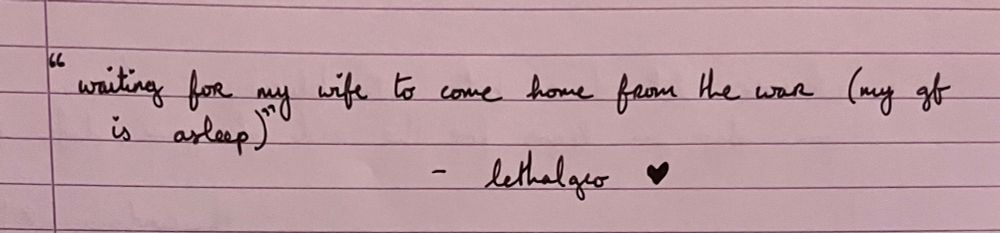 “waiting for my wife to come home from the war (my gf
is asleep)”
- lethalgeo ♥